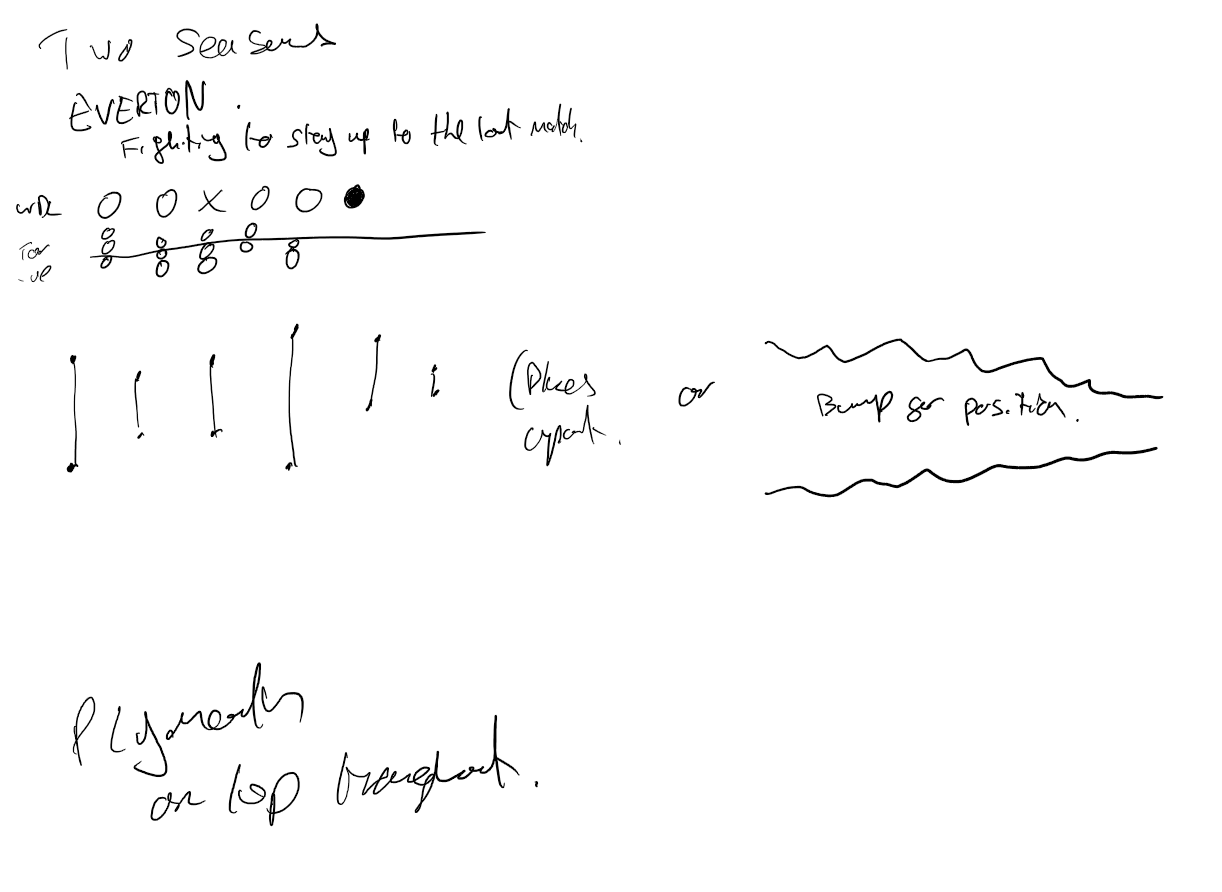 Two Seasons
EVERTON.
Fighting to stay up to the last match.
WDL
-ve
(Places
apart.
or
Bump for position.
Plymouth
on top throughout.